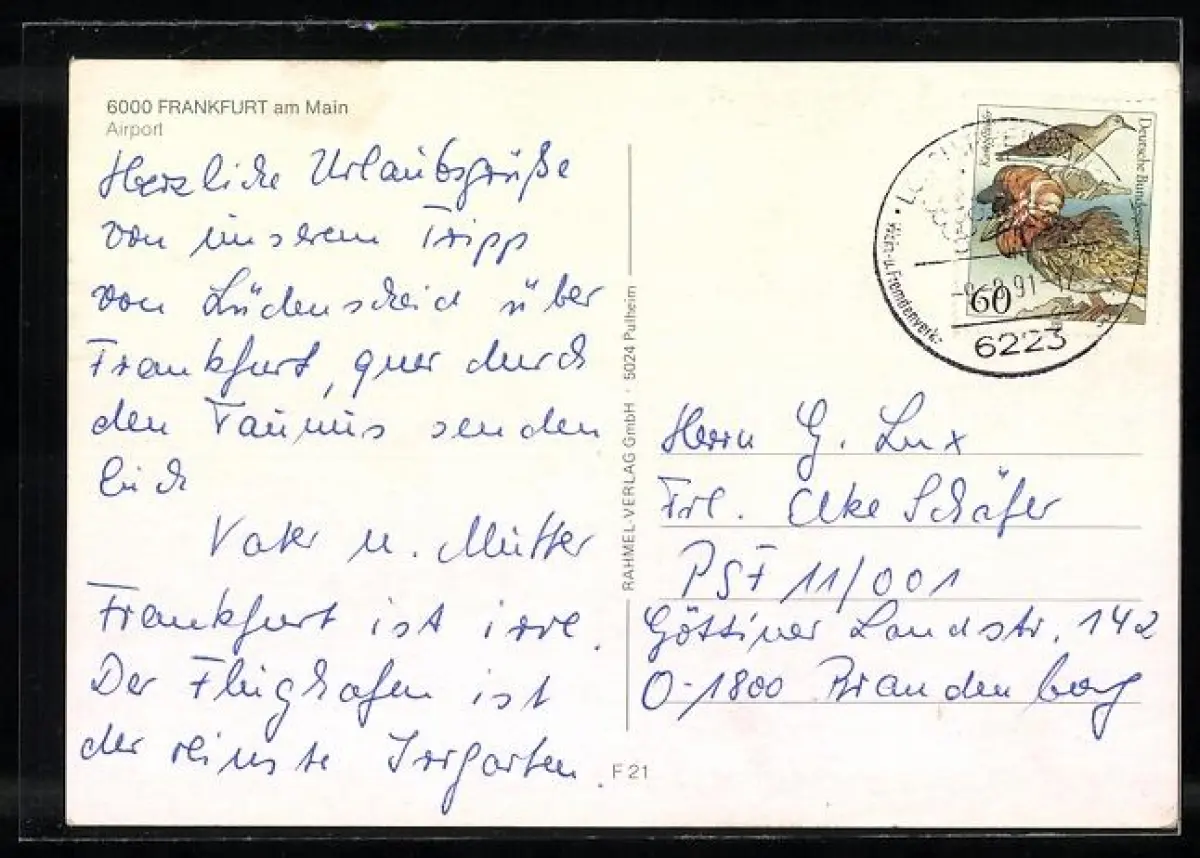 6000 FRANKFURT am Main
Airport
Herzliche Urlaubsgrüße
von unserem Tripp
von Lüdenscheid über
Frankfurt, quer durch
den Taunus senden
Euch
Vater u. Mutter
Frankfurt ist irre.
Der Flughafen ist
der reinste Irrgarten.
RAHMEL-VERLAG GmbH · 5024 Pulheim
F 21
Deutsche Bundespost
Kampfläufer
60
Wein- u. Fremdenverk
91
6223
Herrn G. Lux
Frl. Elke Schäfer
PSF 11/001
Göttiner Landstr. 142
O-1800 Brandenburg